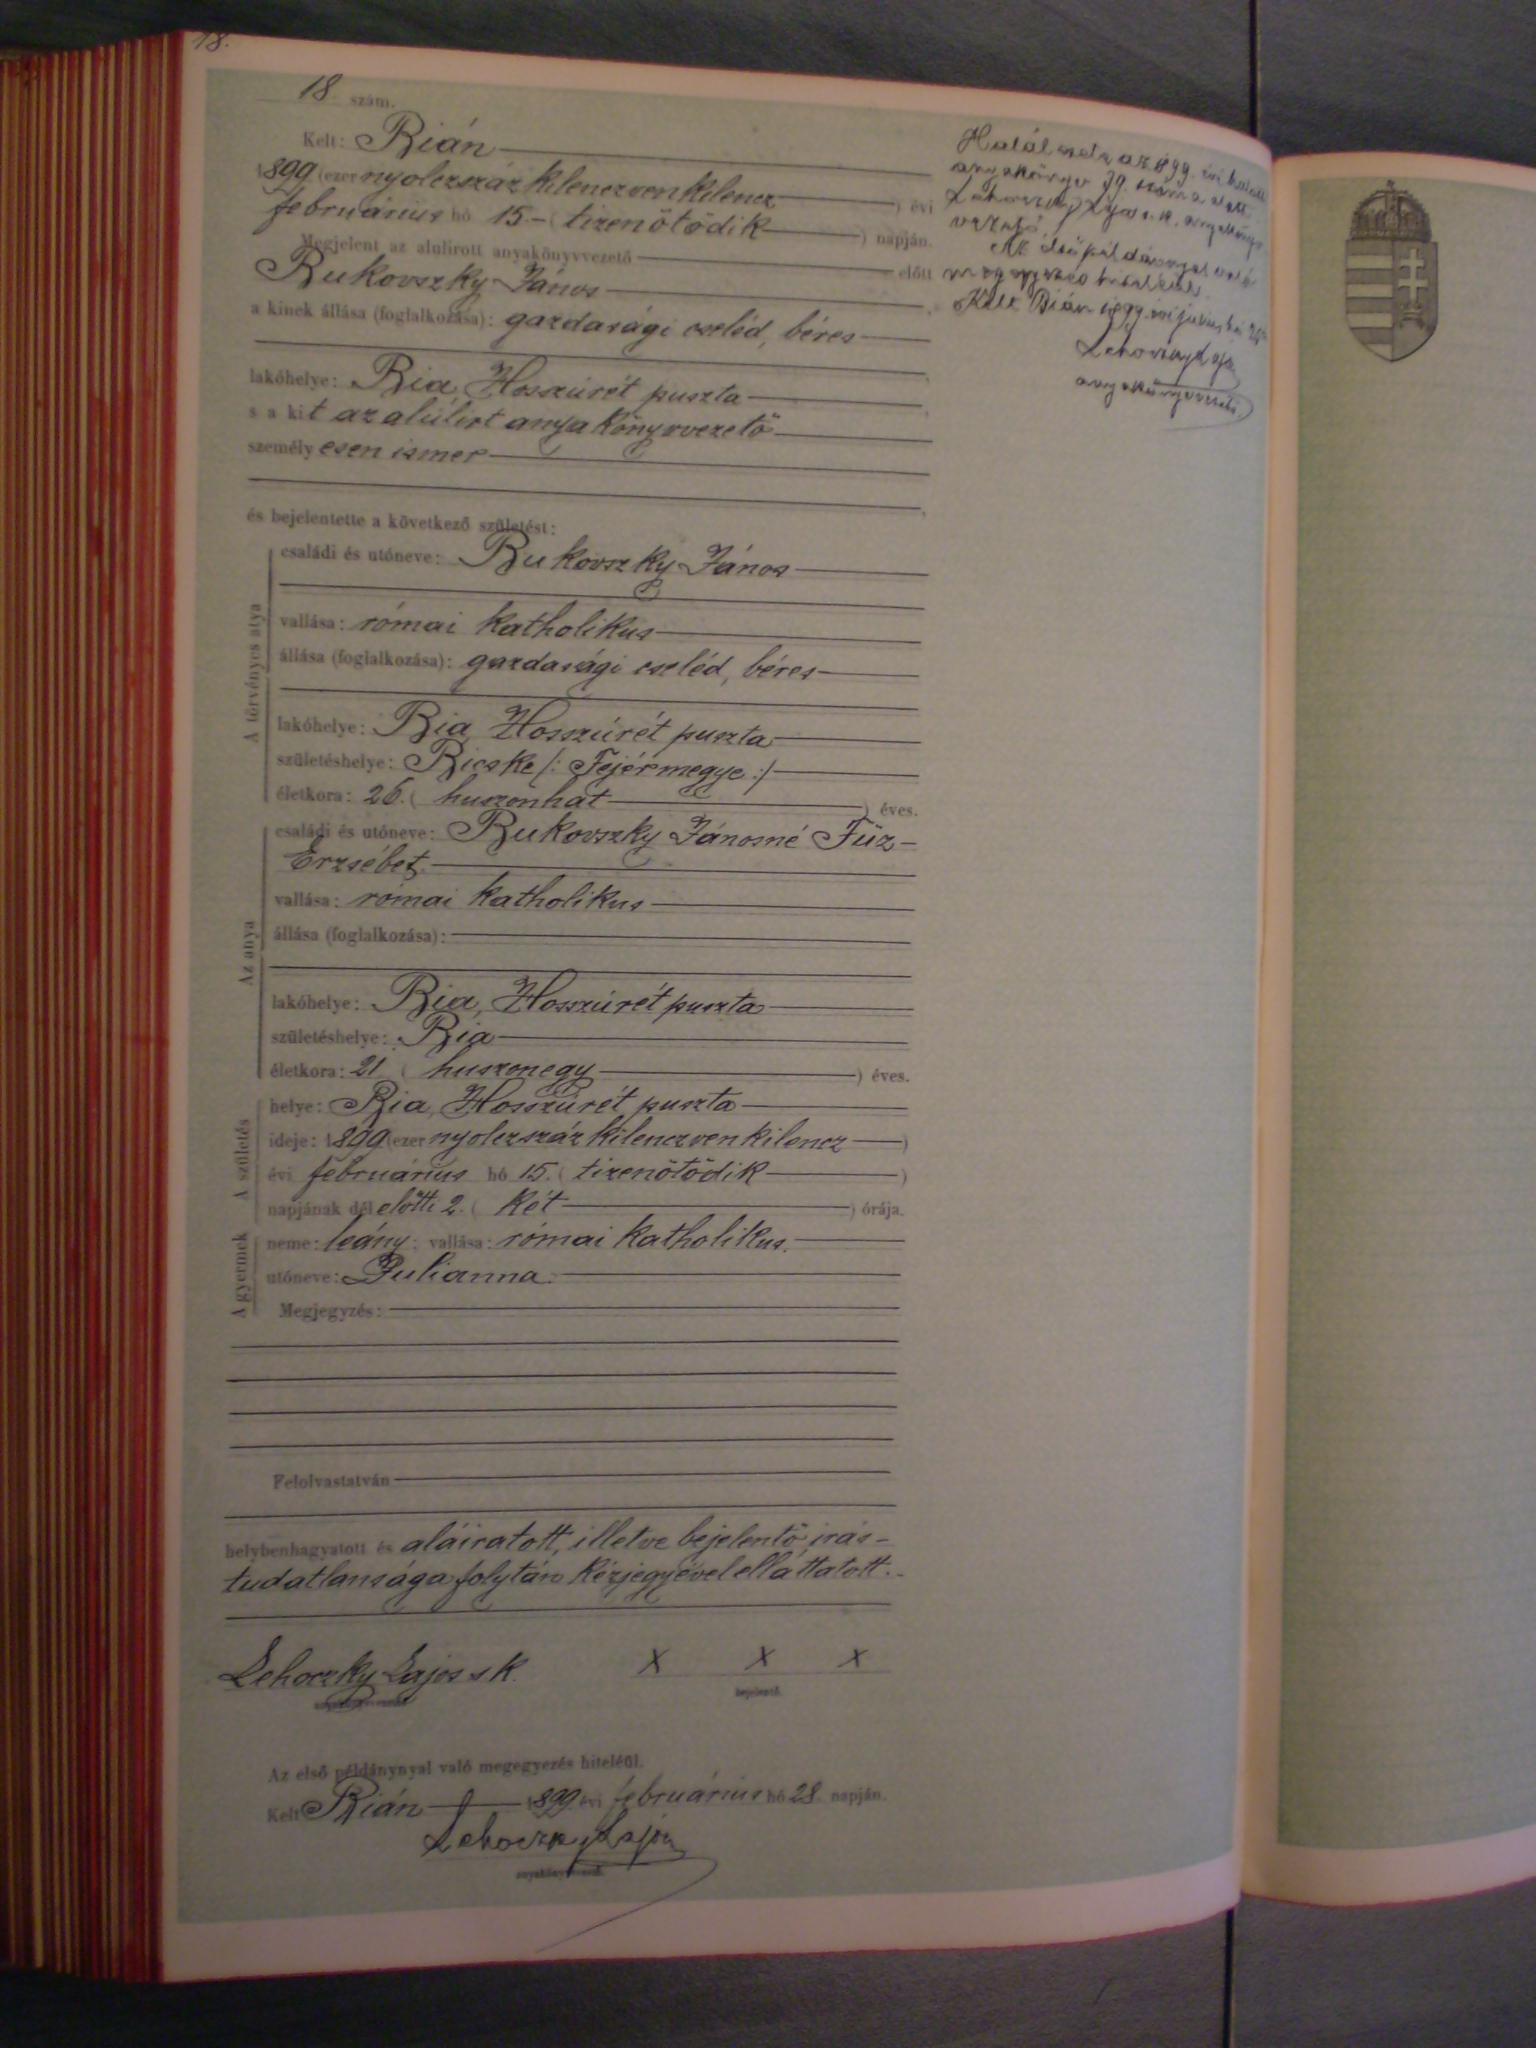 18.
18 szám.
Kelt: Bián
1899 (ezer nyolczszáz kilenczvenkilencz ) évi
február ius hó 15.- ( tizenötödik ) napján.
Megjelent az alulirott anyakönyvvezető előtt
Bukovszky János ,
a kinek állása (foglalkozása): gazdasági cseléd, béres
,
lakóhelye: Bia, Hosszúrét puszta ,
s a kit az alúlirt anyakönyvvezető
személy esen ismer
,
és bejelentette a következő születést:
A törvényes atya
családi és utóneve: Bukovszky János
vallása: római katholikus
állása (foglalkozása): gazdasági cseléd, béres
lakóhelye: Bia, Hosszúrét puszta
születéshelye: Bicske /: Fejérmegye :/
életkora: 26. ( huszonhat ) éves.
Az anya
családi és utóneve: Bukovszky Jánosné Füz-
Erzsébet
vallása: római katholikus
állása (foglalkozása):
lakóhelye: Bia, Hosszúrét puszta
születéshelye: Bia
életkora: 21 ( huszonegy ) éves.
A születés
helye: Bia, Hosszúrét puszta
ideje: 1899 (ezer nyolczszáz kilenczvenkilencz )
évi február ius hó 15. ( tizenötödik )
napjának dél előtti 2. ( két ) órája.
A gyermek
neme: leány; vallása: római katholikus.
utóneve: Julianna.
Megjegyzés:
Felolvastatván
helybenhagyatott és aláiratott, illetve bejelentő irás-
tudatlansága folytán kézjegyével elláttatott.
Lehoczky Lajos s k. X X X
anyakönyvvezető. bejelentő.
Az első példánynyal való megegyezés hiteléül.
Kelt Bián 1899 évi február ius hó 28. napján.
Lehoczky Lajos
anyakönyvvezető.
Halálesete az 1899. évi halotti
anyakönyv 39. száma alatt.
Lehoczky Lajos s. k. anyakönyv
vezető.
Az első példánnyal való
megegyezés hiteléül.
Kelt Bián 1899. évi junius hó
Lehoczky Lajos
anyakönyvvezető